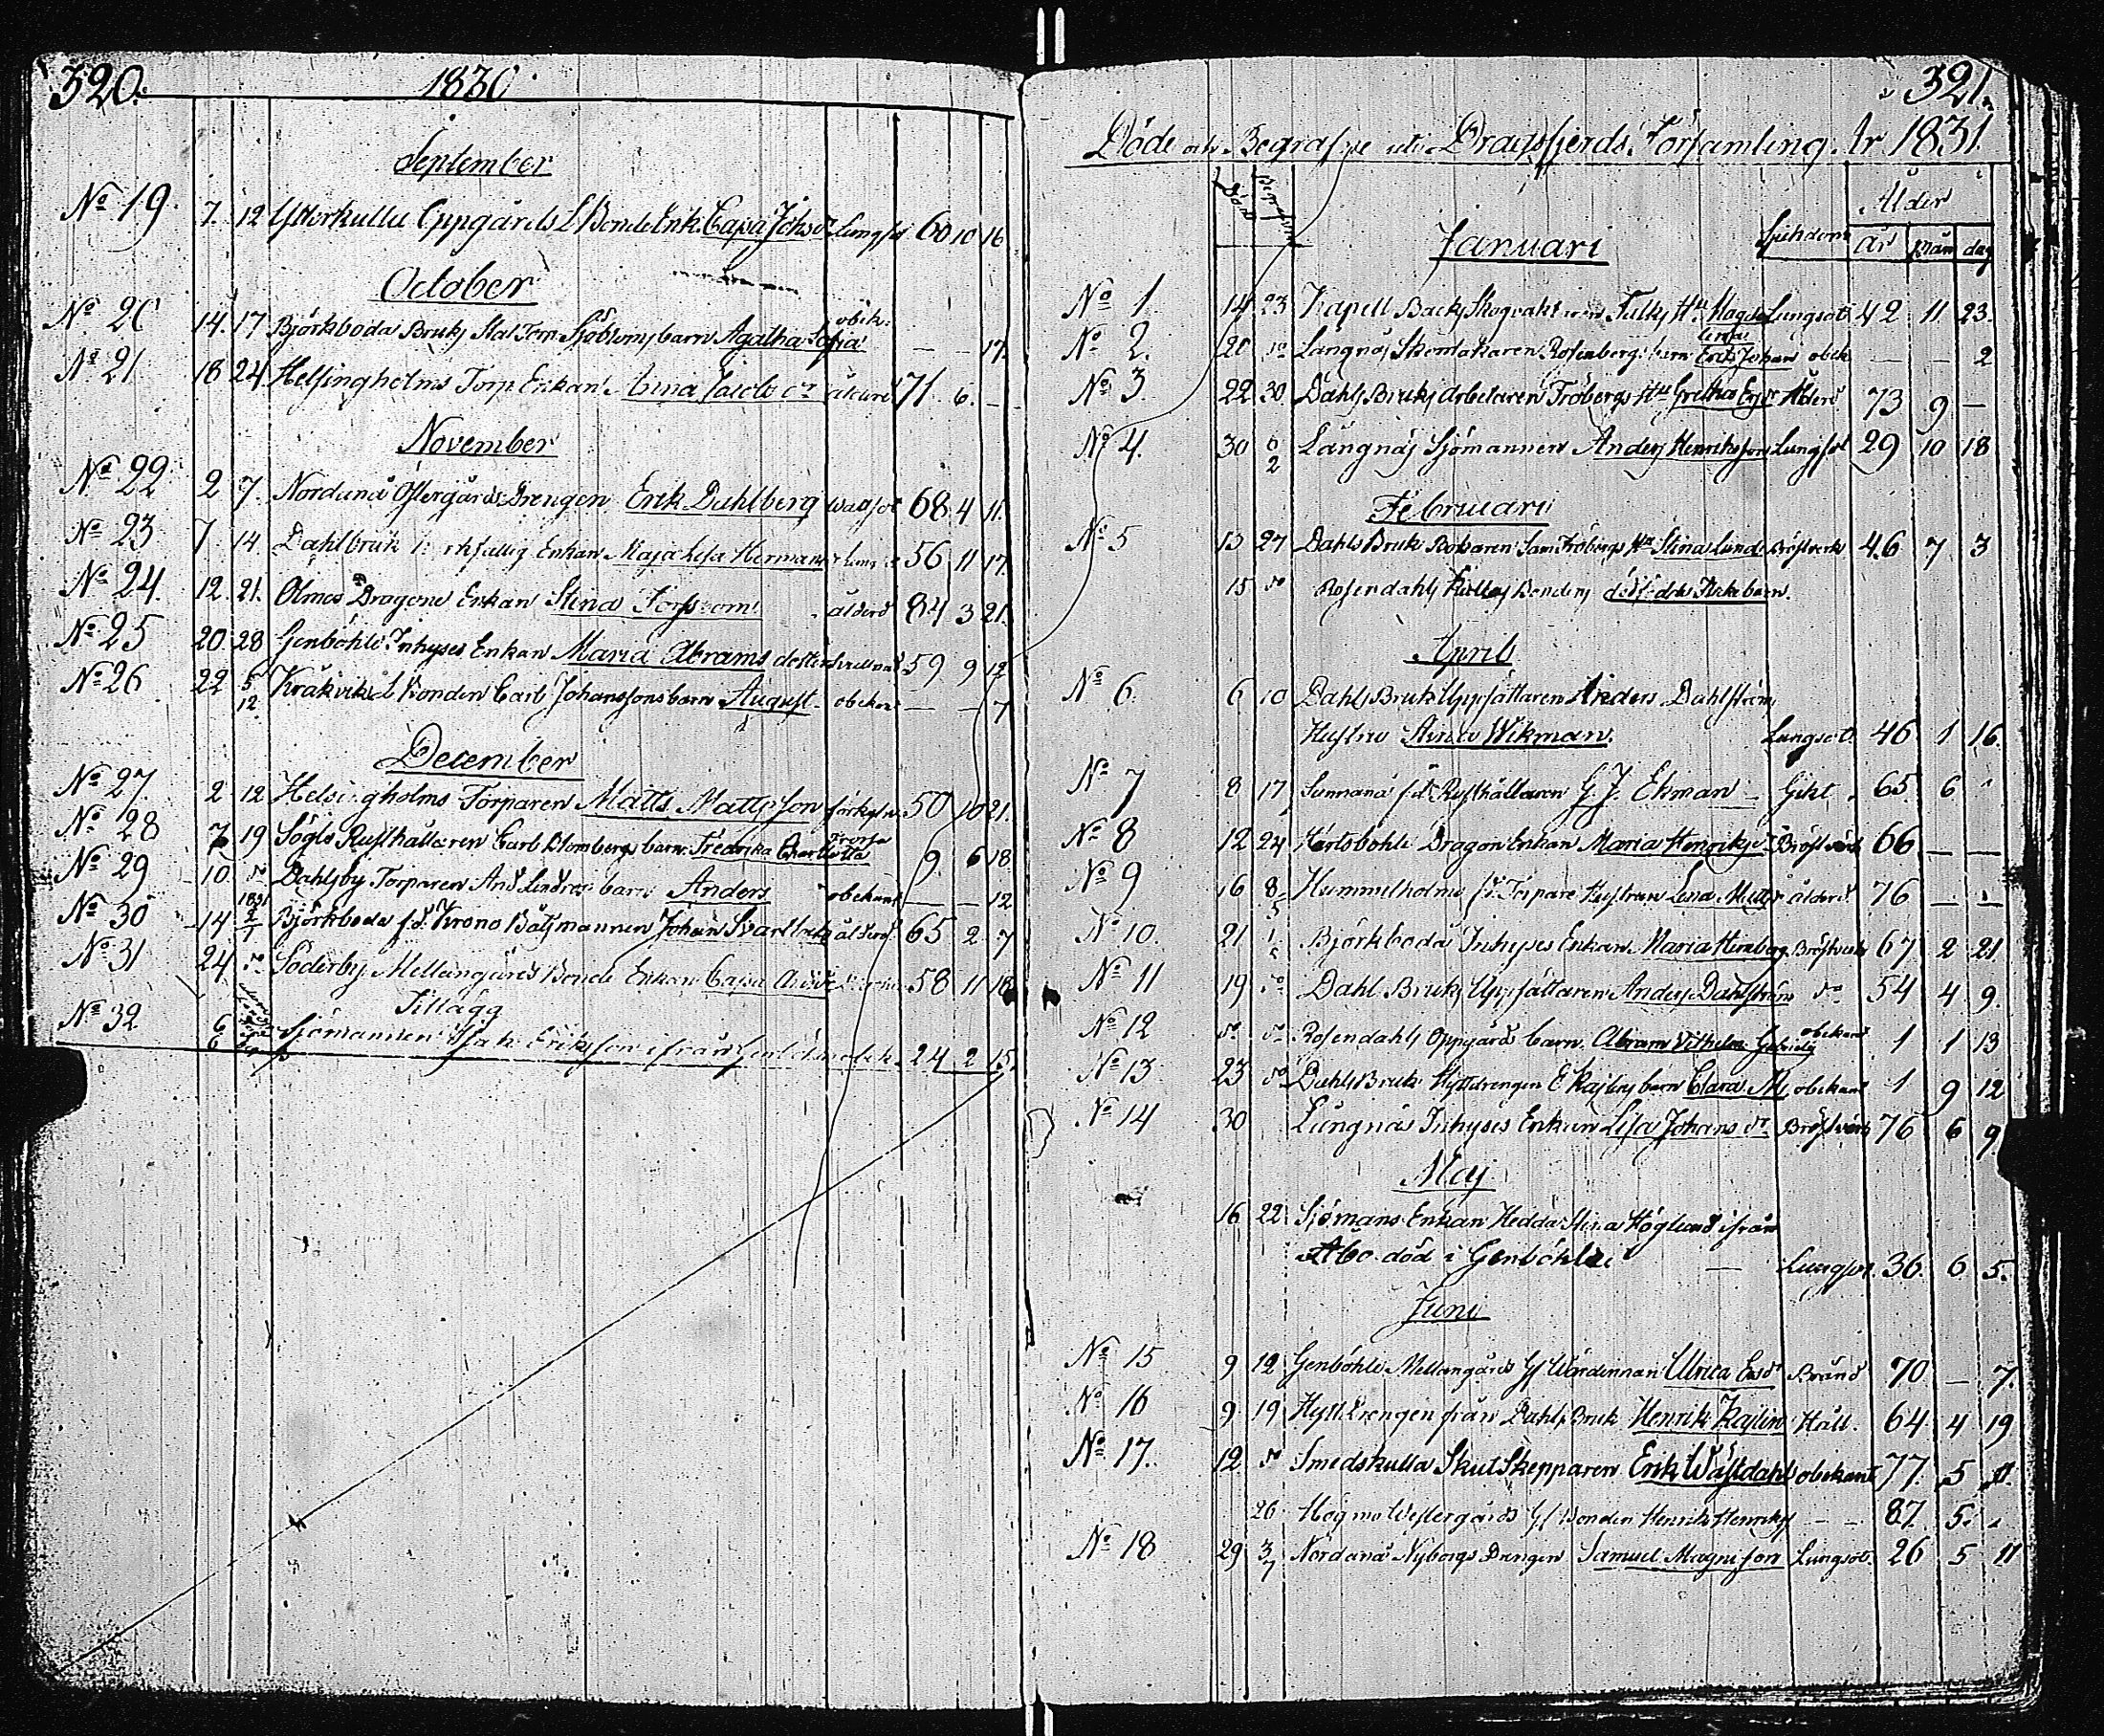 320.
1830.
September
No 19. 7. 12 Ytterkulla Oppgårds Bonde Enk. Cajsa Johs dr Lungsot 60 10 16
October
No 20 14. 17 Björkboda Bruks Sjöbloms barn Agatha Sofia obek. — — 17.
No 21 18 24 Helsingholms Torp Enkan Anna Jacobs dr ålderd. 71 6. —
November
No 22 2 7. Nordanå Östergårds Drengen Erik Dahlberg 68 4 11.
No 23 7. 14. Dahlsbruk Enkan Maja Lisa Hermans 56 11 17.
No 24. 12. 21. Ölmos Dragone Enkan Stina Forsström ålderd 84 3 21.
No 25 20. 28 Genböhle Inhyses Enkan Maria Abrams dotter 59 9 12
No 26 22 5/12. Kråkvik Bonden Carl Johanssons barn August obekant — — 7
December
No 27 2 12 Helsingholms Torparen Matts Mattsson förkyln. 50 10 21.
No 28 7 19 Sögls Rusthållaren Carl Blombergs barn Fredrika Charlotta 9. 6 18
No 29 10 do Dahlsby Torparen And Lindros barn Anders obekant — — 12
No 30 14 1831 2/1 Björkboda f.d. Krono Båtsmannen Johan Svartbäck ålderd. 65 2 7
No 31 24 do Söderby Mellangårds Bonde Enkan Cajsa 58 11 18
Tillägg
No 32 6/6 Sjömannen Isak Eriksson ifrån 24 2 15.
321.
Döde och Begrafne uti Dragsfjerds Församling År 1831.
Död Begrafne Sjukdom Ålder
År mån dag
Januari
No 1 14 23 Kapell Backs Skogvakt Falks Hu Magda Lungsot 42 11 23.
No 2. 20 do Långnäs Skomakaren Rosenbergs barn Erik Johan obek — — 2
No 3 22 30 Dahls Bruks Arbetaren Fröbergs Hu Gretha Ersdr Ålderd 73 9 —
No 4. 30 6/2 Långnäs Sjömannen Anders Henriksson Lungsot 29 10 18
Februari
No 5 13 27 Dahls Bruk Sam Fröbergs Hu Stina Lund Bröstverk 46 7 3
15 do Rosendahls Kullas Bondens dödfödda flickebarn.
April
No 6. 6 10 Dahls Bruk Uppsättaren Anders Dahlströms
Hustru Anna Wikman. Lungsot. 46 1 16.
No 7 8 17 Sunnanå f.d. Rusthållaren G. J. Ekman — Gikt 65. 6
No 8 12 24 Hertsböhle Dragon Enkan Maria Henriks dr Bröstverk 66 — —
No 9 16 8/5 Hummelholms f.d. Torpare Hustrun Lena Matts dr ålderd. 76 — —
No 10. 21 1/5 Björkboda Inhyses Enkan Maria Bröstverk 67 2 21
No 11 19 do Dahl Bruks Uppsättaren Anders Dahlström do 54 4 9.
No 12 do do Rosendahls Oppgårds barn Abram Vilhelm Gabriels obekant 1 1 13
No 13 23 do Dahls Bruk Hyttdrengen E Kajlins barn Clara M. obekant 1 9 12
No 14 30 Långnäs Inhyses Enkan Lisa Johans dr Bröstverk 76 6 9
Maj
16 22 Sjömans Enkan Hedda Stina Höglund ifrån
Åbo död i Genböhle — Lungsot. 36. 6 5.
Juni
No 15 9 12 Genböhle Mellangårds Gl Värdinnan Ulrica Ersdr Brånd 70 — 7.
No 16 9 19 Hyttdrengen från Dahls Bruk Henrik Kajlin Håll. 64 4 19
No 17. 12 do Smedskulla Skutskepparen Erik Wästdahl obekant 77. 5 11.
26 Högmo Westergårds Gl Bonden Henrik Henriks — — 87. 5.
No 18 29 3/7 Nordanå Nyborgs Drengen Samuel Magnusson Lungsot. 26 5 11